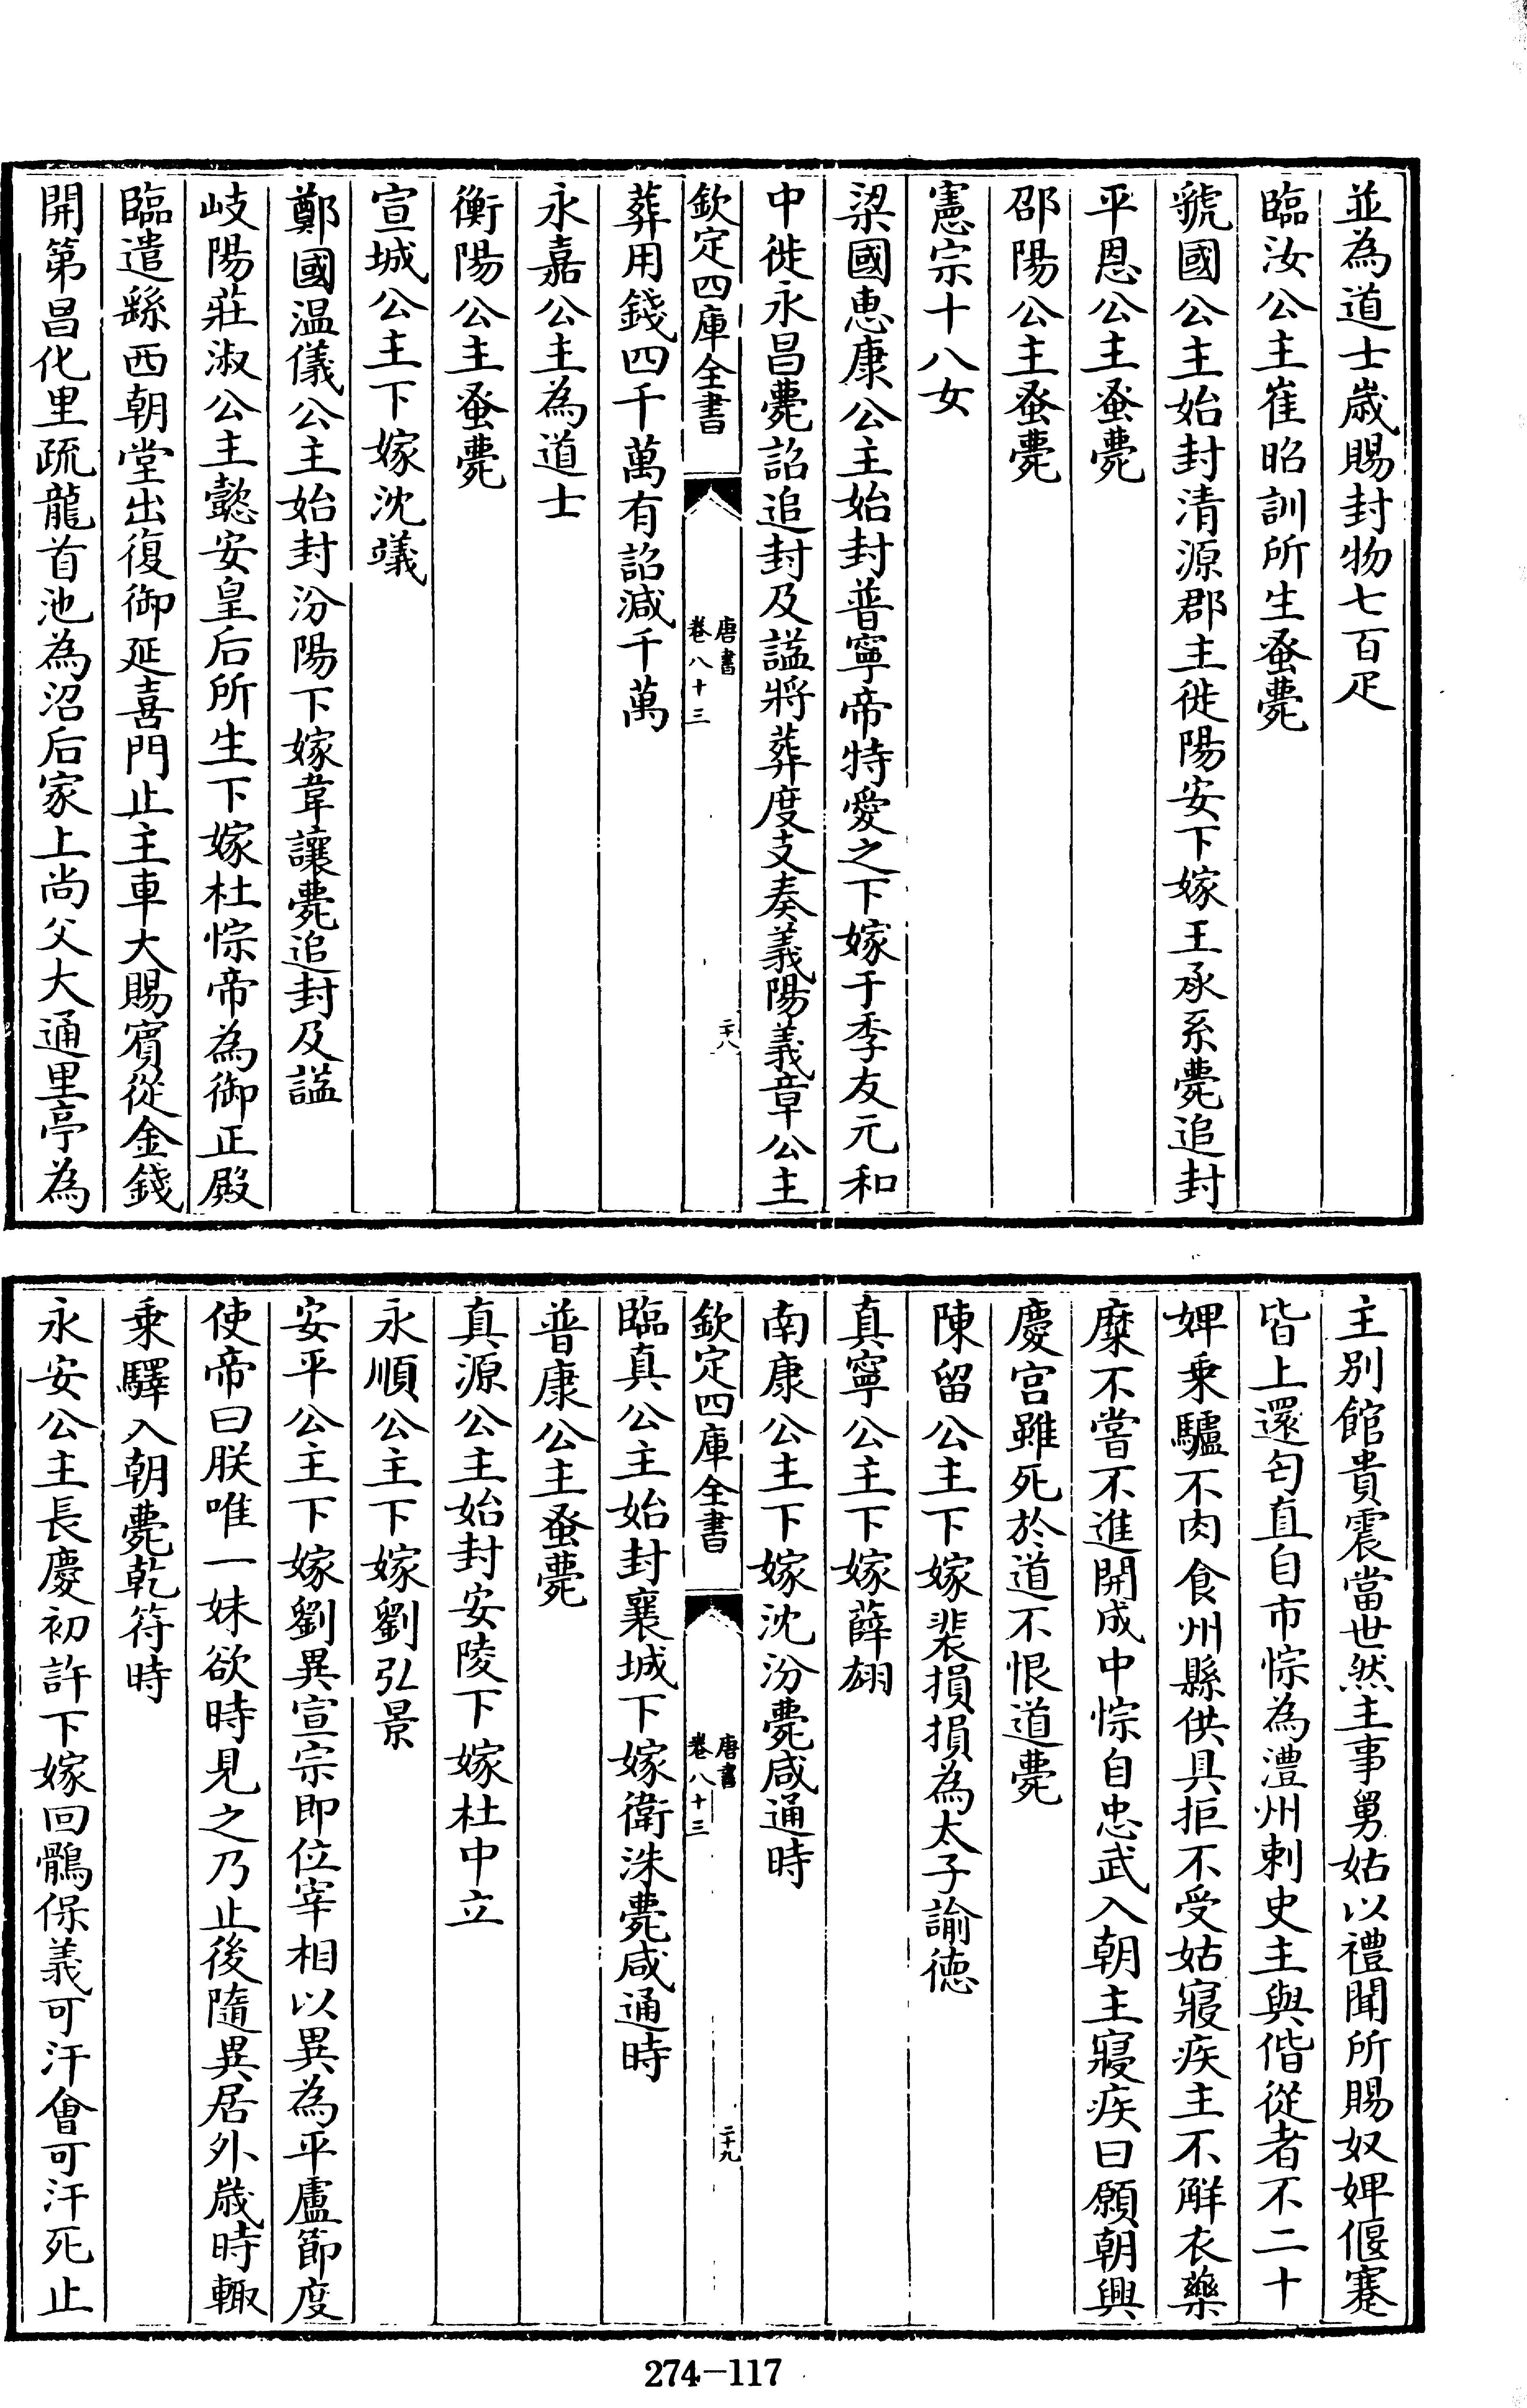 並為道士歲賜封物七百疋
臨汝公主崔昭訓所生蚤薨
虢國公主始封清源郡主徙陽安下嫁王承系薨追封
平恩公主蚤薨
邵陽公主蚤薨
憲宗十八女
梁國惠康公主始封普寧帝特愛之下嫁于季友元和
中徙永昌薨詔追封及諡將葬度支奏義陽義章公主
欽定四庫全書
唐書
卷八十三
二十八
葬用錢四千萬有詔減千萬
永嘉公主為道士
衡陽公主蚤薨
宣城公主下嫁沈𥫃
鄭國温儀公主始封汾陽下嫁韋讓薨追封及諡
岐陽莊淑公主懿安皇后所生下嫁杜悰帝為御正殿
臨遣繇西朝堂出復御延喜門止主車大賜賓從金錢
開第昌化里疏龍首池為沼后家上尚父大通里亭為
主別館貴震當世然主事舅姑以禮聞所賜奴婢偃蹇
皆上還匄直自市悰為澧州刺史主與偕從者不二十
婢乘驢不肉食州縣供具拒不受姑寢疾主不解衣藥
糜不嘗不進開成中悰自忠武入朝主寢疾曰願朝興
慶宮雖死於道不恨道薨
陳留公主下嫁裴損損為太子諭德
真寧公主下嫁薛翃
南康公主下嫁沈汾薨咸通時
欽定四庫全書
唐書
卷八十三
二十九
臨真公主始封襄城下嫁衛洙薨咸通時
普康公主蚤薨
真源公主始封安陵下嫁杜中立
永順公主下嫁劉弘景
安平公主下嫁劉異宣宗即位宰相以異為平盧節度
使帝曰朕唯一妹欲時見之乃止後隨異居外歲時輙
乘驛入朝薨乾符時
永安公主長慶初許下嫁回鶻保義可汗會可汗死止
274-117